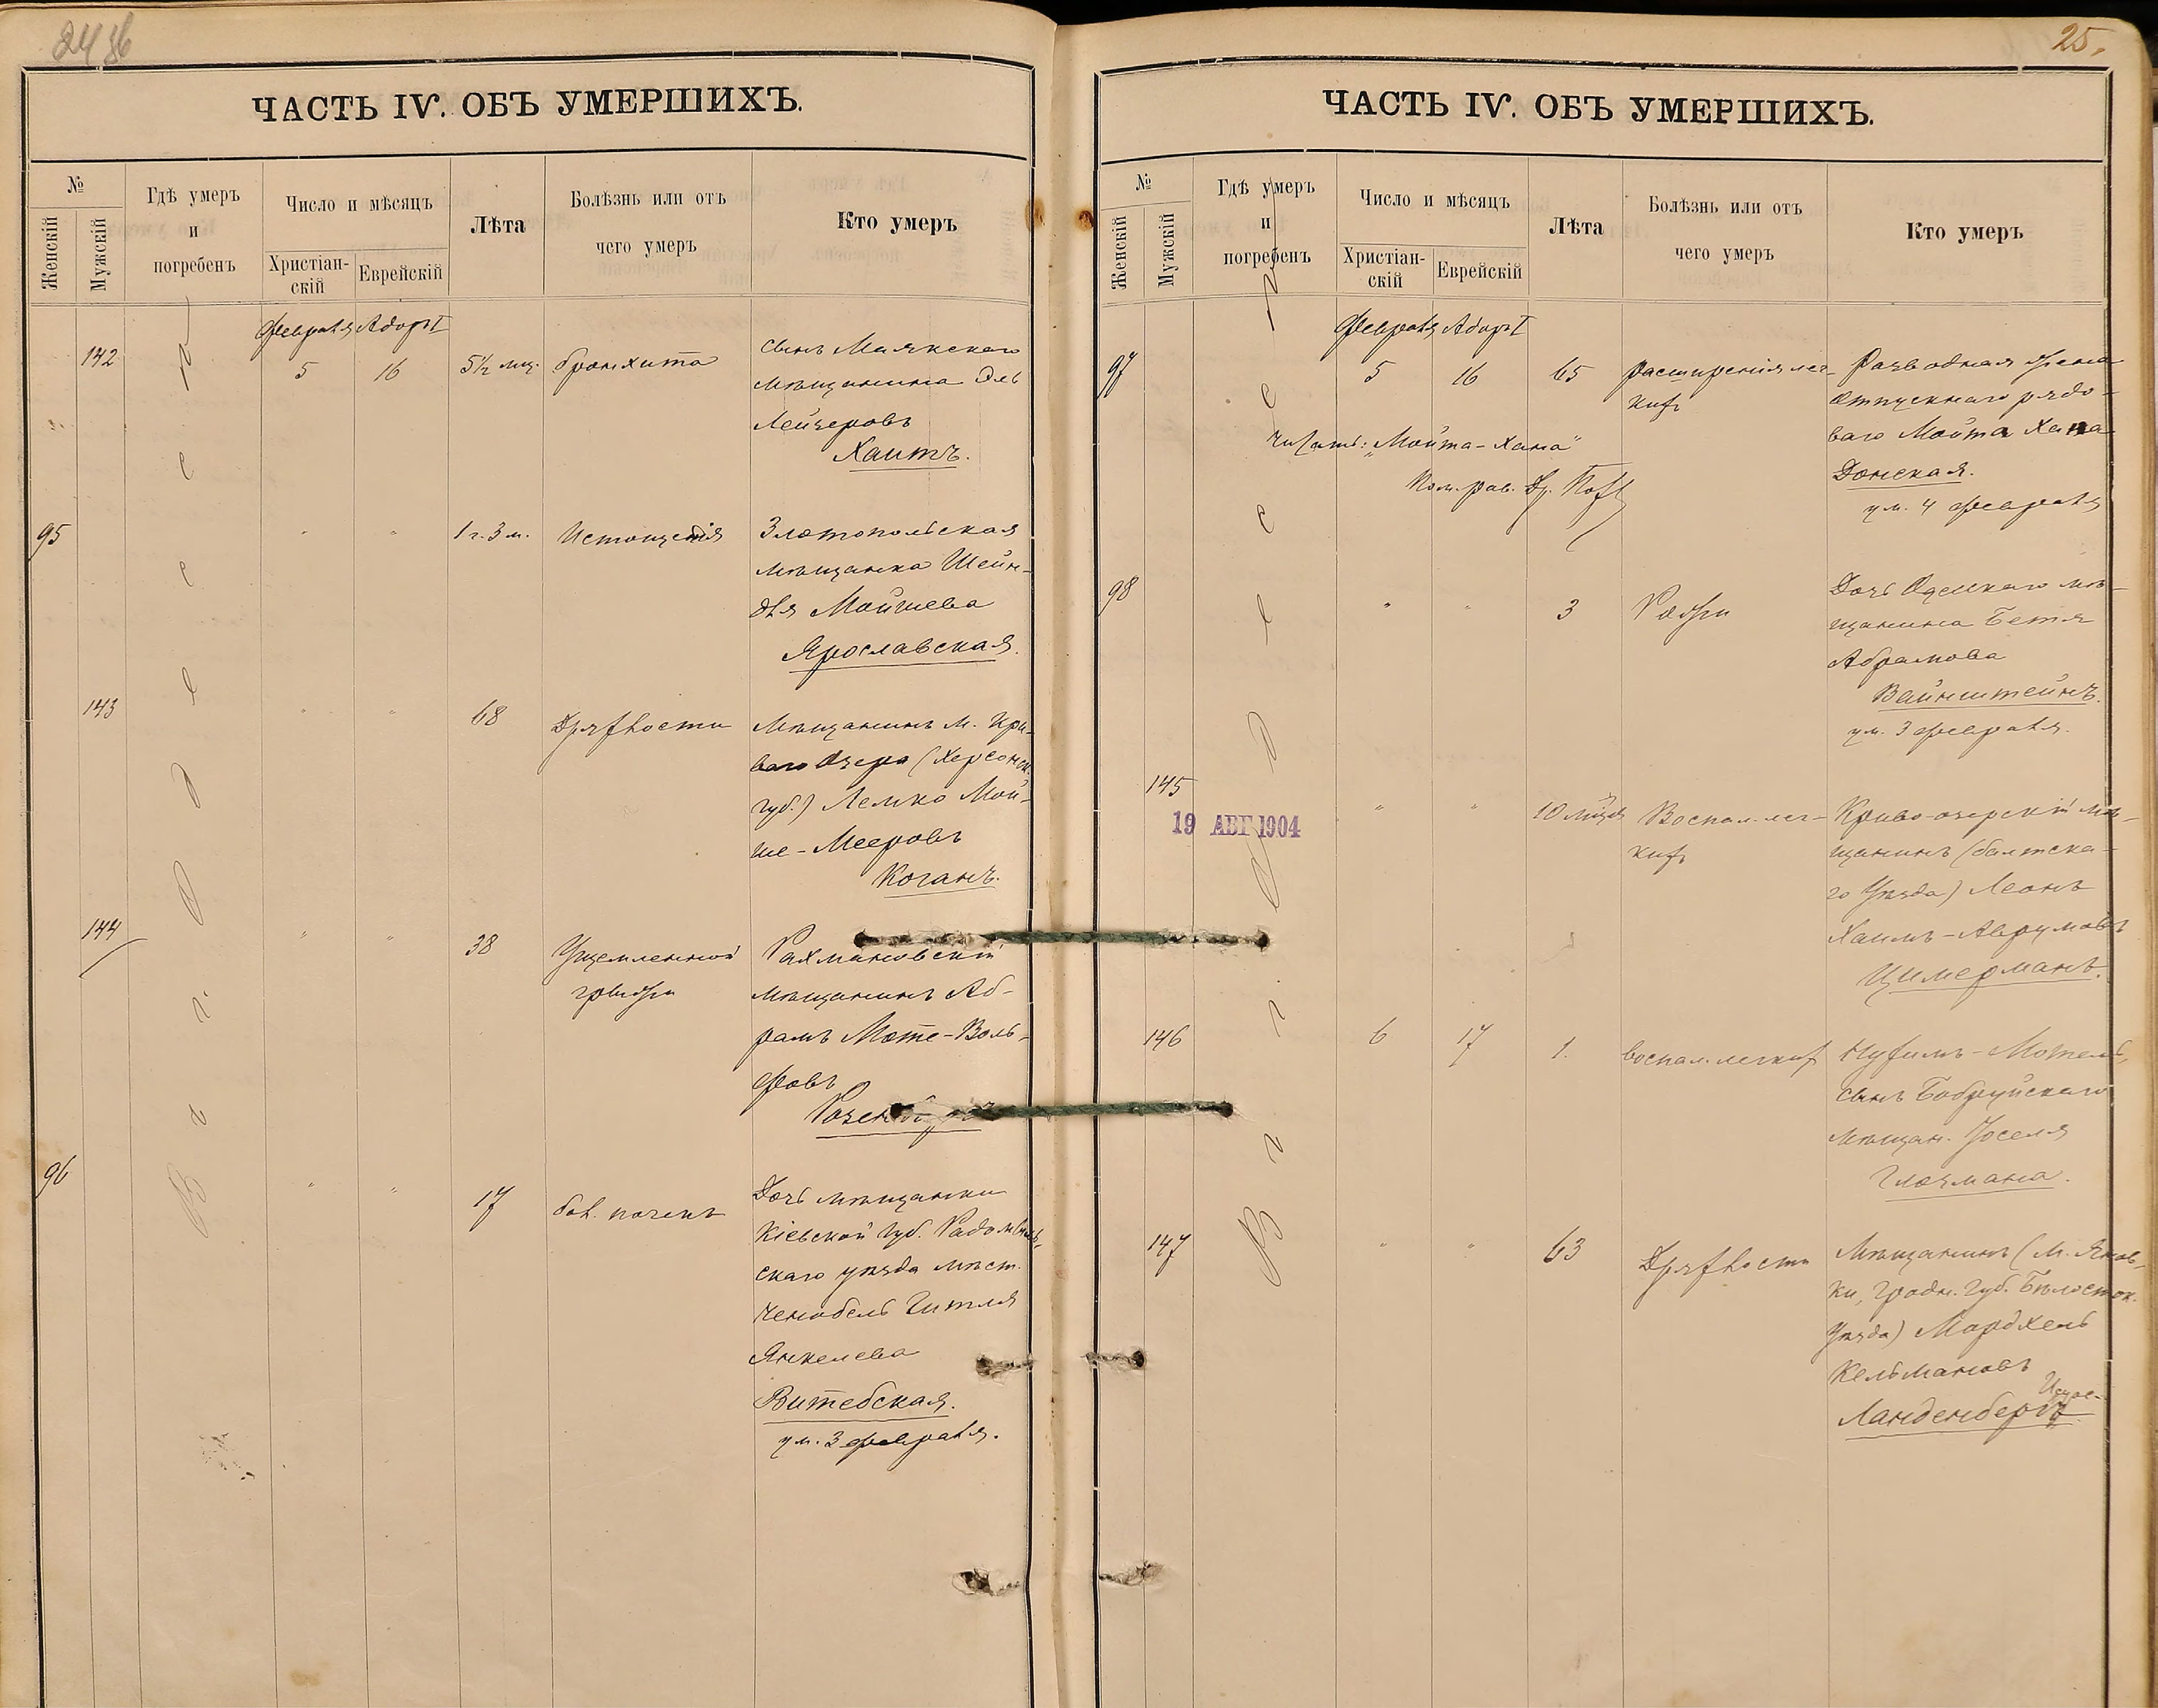 24 об
ЧАСТЬ IV. ОБЪ УМЕРШИХЪ.
№
Женскій
Мужскій
Гдѣ умеръ
и
погребенъ
Число и мѣсяцъ
Христіан-
скій
Еврейскій
Лѣта
Болѣзнь или отъ
чего умеръ
Кто умеръ
Февраля Адаръ I
142 5 16 5½ мц. бронхита сынъ Маякскаго
мѣщанина Эль
Лейзеровъ
Хаитъ.
95 " " 1 г. 3 м. Истощенія Златопольская
мѣщанка Шейн-
для Мойшева
Ярославская.
143 " " 68 Дряхлости Мѣщанинъ м. Кри-
ваго Озера (Херсонск.
губ.) Лемко Мой-
ше-Мееровъ
Коганъ.
144 " " 38 Ущемленной Рахмановскій
грыжи мѣщанинъ Аб-
рамъ Моте-Воль-
фовъ
96 " " 17 бол. почекъ Дочь мѣщанки
Кіевской губ. Радомысль-
скаго уѣзда мѣст.
Чернобель Гитля
Янкелева
Витебская.
ум. 3 февраля.
Въ г. Одессѣ
25.
ЧАСТЬ IV. ОБЪ УМЕРШИХЪ.
№
Женскій
Мужскій
Гдѣ умеръ
и
погребенъ
Число и мѣсяцъ
Христіан-
скій
Еврейскій
Лѣта
Болѣзнь или отъ
чего умеръ
Кто умеръ
Февраля Адаръ I
97 5 16 65 расширенія лег- Разводная жена
кихъ отпускнаго рядо-
ваго Мойта Хана
Донская.
ум. 4 февраля
Читать: „Мойта-Хана"
Пом. рав. Др.
98 " " 3 Рожи Дочь Одесскаго мѣ-
щанина Бетя
Абрамова
Вайнштейнъ.
ум. 3 февраля.
145 " " 10 мцев Воспал. лег- Криво-озерскій мѣ-
19 АВГ 1904
кихъ щанинъ (балтска-
го Уѣзда) Леонъ
Хаимъ-Аврумовъ
Цимерманъ.
146 6 17 1. воспал. легких Нухимъ-Мотель,
сынъ Бобруйскаго
мѣщан. Іоселя
Глозмана.
147 " " 63 Дряхлости Мѣщанинъ (м. Янов-
ки, Гродн. Губ. Бѣлосток.
Уѣзда) Мордхель
Кельмановъ
Ланденбергъ
Въ г. Одессѣ